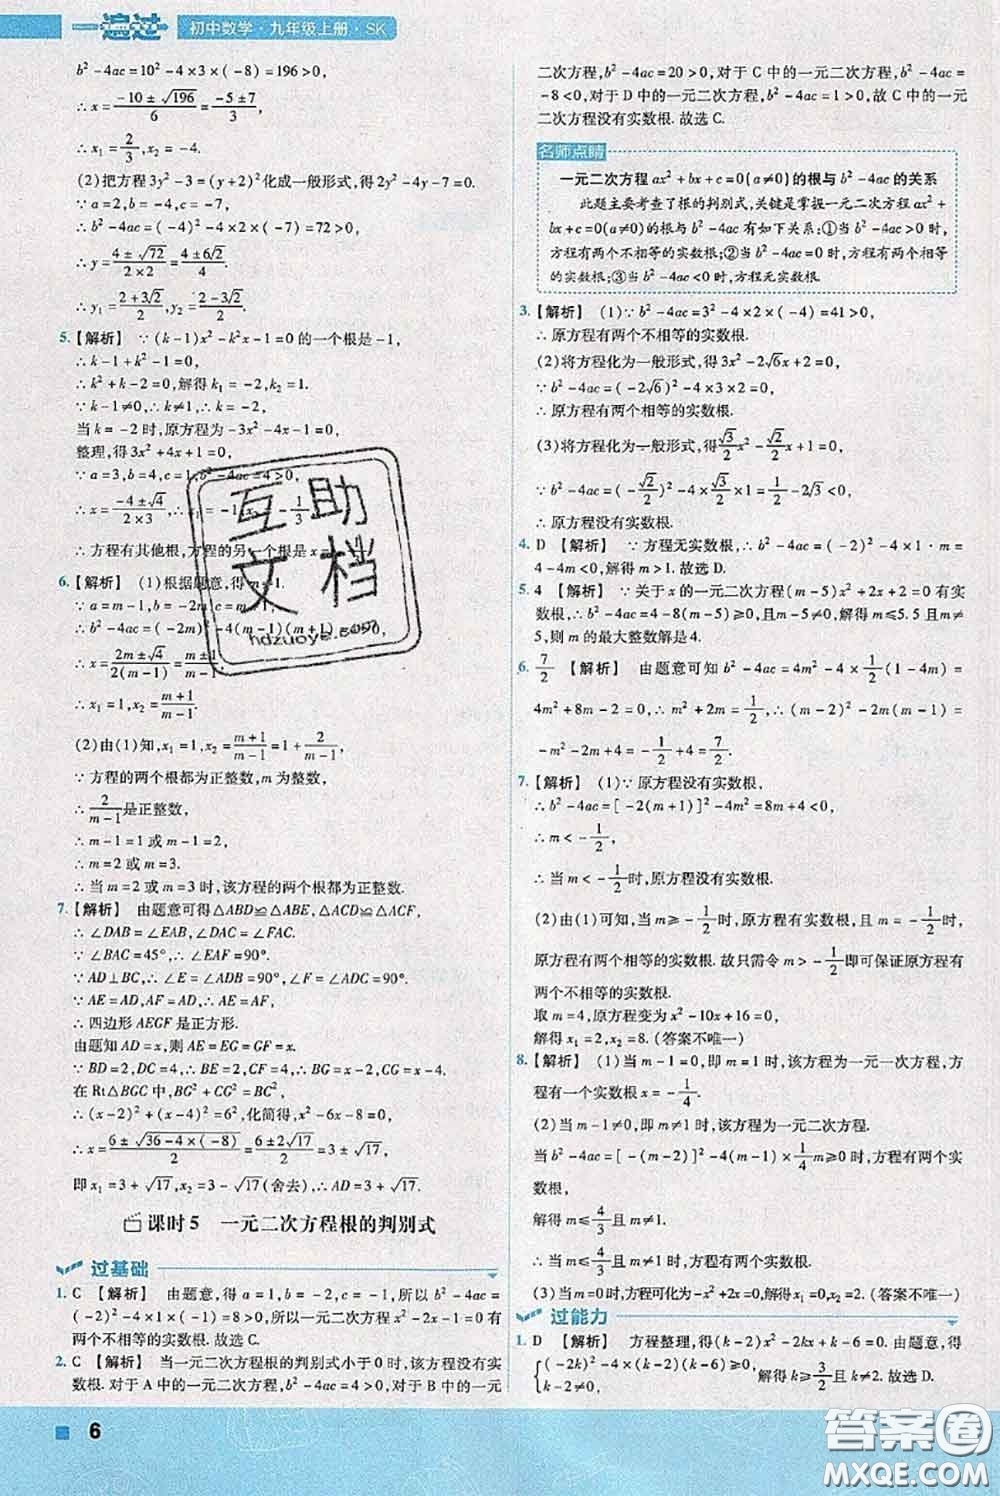 一遍过 初中数学·九年级上册·SK
b²-4ac=10²-4×3×(-8)=196>0,
∴x=(-10±√196)/6=(-5±7)/3,
∴x₁=2/3,x₂=-4.
(2)把方程3y²-3=(y+2)²化成一般形式,得2y²-4y-7=0,
∵a=2,b=-4,c=-7,
∴b²-4ac=(-4)²-4×2×(-7)=72>0,
∴y=(4±√72)/(2×2)=(4±6√2)/4.
∴y₁=(2+3√2)/2,y₂=(2-3√2)/2.
5.【解析】 ∵(k-1)x²-k²x-1=0的一个根是-1,
∴k-1+k²-1=0,
∴k²+k-2=0,解得k₁=-2,k₂=1.
∵k-1≠0,∴k≠1,∴k=-2,
当k=-2时,原方程为-3x²-4x-1=0,
整理,得3x²+4x+1=0,
∵a=3,b=4,c=1,b²-4ac=4>0,
∴x=(-4±√4)/(2×3),
∴方程有其他根,方程的另一个根是x=
6.【解析】 (1)根据题意,得m≠1.
∵a=m-1,b=-2m,c=m+1,
∴b²-4ac=(-2m)²-4(m-1)(m+1)=4>0,
∴x=(2m±√4)/(2(m-1))=(m±1)/(m-1),
∴x₁=1,x₂=(m+1)/(m-1).
(2)由(1)知,x₁=1,x₂=(m+1)/(m-1)=1+2/(m-1).
∵方程的两个根都为正整数,m为整数,
∴2/(m-1)是正整数,
∴m-1=1或m-1=2,
∴m=2或m=3.
∴当m=2或m=3时,该方程的两个根都为正整数.
7.【解析】 由题意可得△ABD≌△ABE,△ACD≌△ACF,
∴∠DAB=∠EAB,∠DAC=∠FAC.
∵∠BAC=45°,∴∠EAF=90°.
∵AD⊥BC,∴∠E=∠ADB=90°,∠F=∠ADC=90°.
∵AE=AD,AF=AD,∴AE=AF,
∴四边形AEGF是正方形.
由题知AD=x,则AE=EG=GF=x.
∵BD=2,DC=4,∴BE=2,CF=4,∴BG=x-2,CG=x-4.
在Rt△BGC中,BG²+CG²=BC²,
∴(x-2)²+(x-4)²=6²,化简得,x²-6x-8=0,
∴x=(6±√(36-4×(-8)))/2=(6±2√17)/2,
即x₁=3+√17,x₂=3-√17(舍去),∴AD=x=3+√17.
课时5 一元二次方程根的判别式
过基础
1. C 【解析】 由题意,得a=1,b=-2,c=-1,所以b²-4ac=
(-2)²-4×1×(-1)=8>0,所以一元二次方程x²-2x-1=0有
两个不相等的实数根.故选C.
2. C 【解析】 当一元二次方程根的判别式小于0时,该方程没有实
数根.对于A中的一元二次方程,b²-4ac=4>0,对于B中的一元
二次方程,b²-4ac=20>0,对于C中的一元二次方程,b²-4ac=
-8<0,对于D中的一元二次方程,b²-4ac=1>0,故C中的一元
二次方程没有实数根.故选C.
名师点睛
一元二次方程ax²+bx+c=0(a≠0)的根与b²-4ac的关系
此题主要考查了根的判别式,关键是掌握一元二次方程ax²+
bx+c=0(a≠0)的根与b²-4ac有如下关系:①当b²-4ac>0时,
方程有两个不相等的实数根;②当b²-4ac=0时,方程有两个相等
的实数根;③当b²-4ac<0时,方程无实数根.
3.【解析】 (1)∵b²-4ac=3²-4×2×(-4)=41>0,
∴原方程有两个不相等的实数根.
(2)将方程化为一般形式,得3x²-2√6x+2=0,
∵b²-4ac=(-2√6)²-4×3×2=0,
∴原方程有两个相等的实数根.
(3)将方程化为一般形式,得√3/2x²-√2/2x+1=0,
∵b²-4ac=(-√2/2)²-4×√3/2×1=1/2-2√3<0,
∴原方程没有实数根.
4. D 【解析】 ∵方程无实数根,∴b²-4ac=(-2)²-4×1·m=
4-4m<0,解得m>1.故选D.
5. 4 【解析】 ∵关于x的一元二次方程(m-5)x²+2x+2=0有实
数根,∴b²-4ac=4-8(m-5)≥0,且m-5≠0,解得m≤5.5且m
≠5,则m的最大整数解是4.
6. 7/2 【解析】 由题意可知b²-4ac=4m²-4×1/2(1-4m)=
4m²+8m-2=0,∴m²+2m=1/2,∴(m-2)²-2m(m-1)=
-m²-2m+4=-1/2+4=7/2.
7.【解析】 (1)∵原方程没有实数根,
∴b²-4ac=[-2(m+1)]²-4m²=8m+4<0,
∴m<-1/2,
∴当m<-1/2时,原方程没有实数根.
(2)由(1)可知,当m≥-1/2时,原方程有实数根,当m=-1/2时,
原方程有两个相等的实数根.故只需令m>-1/2即可保证原方程有
两个不相等的实数根.
取m=4,原方程变为x²-10x+16=0,
解得x₁=2,x₂=8.(答案不唯一)
8.【解析】 (1)当m-1=0,即m=1时,该方程为一元一次方程,方
程有一个实数根x=-1/4.
(2)当m-1≠0,即m≠1时,该方程为一元二次方程.
当b²-4ac=[-(m-2)]²-4(m-1)×1/4m≥0时,方程有两个实
数根,
解得m≤4/3且m≠1.
∴当m≤4/3且m≠1时,该方程有两个实数根.
(3)当m=0时,方程可化为-x²+2x=0.(答案不唯一)
过能力
1. D 【解析】 方程整理,得(k-2)x²-2kx+k-6=0.由题意,得
{(-2k)²-4×(k-2)(k-6)≥0,
k-2≠0, 解得k≥3/2且k≠2.故选D.
互助
文档
hdzuoye.com
6
答案圈
MXQE.COM